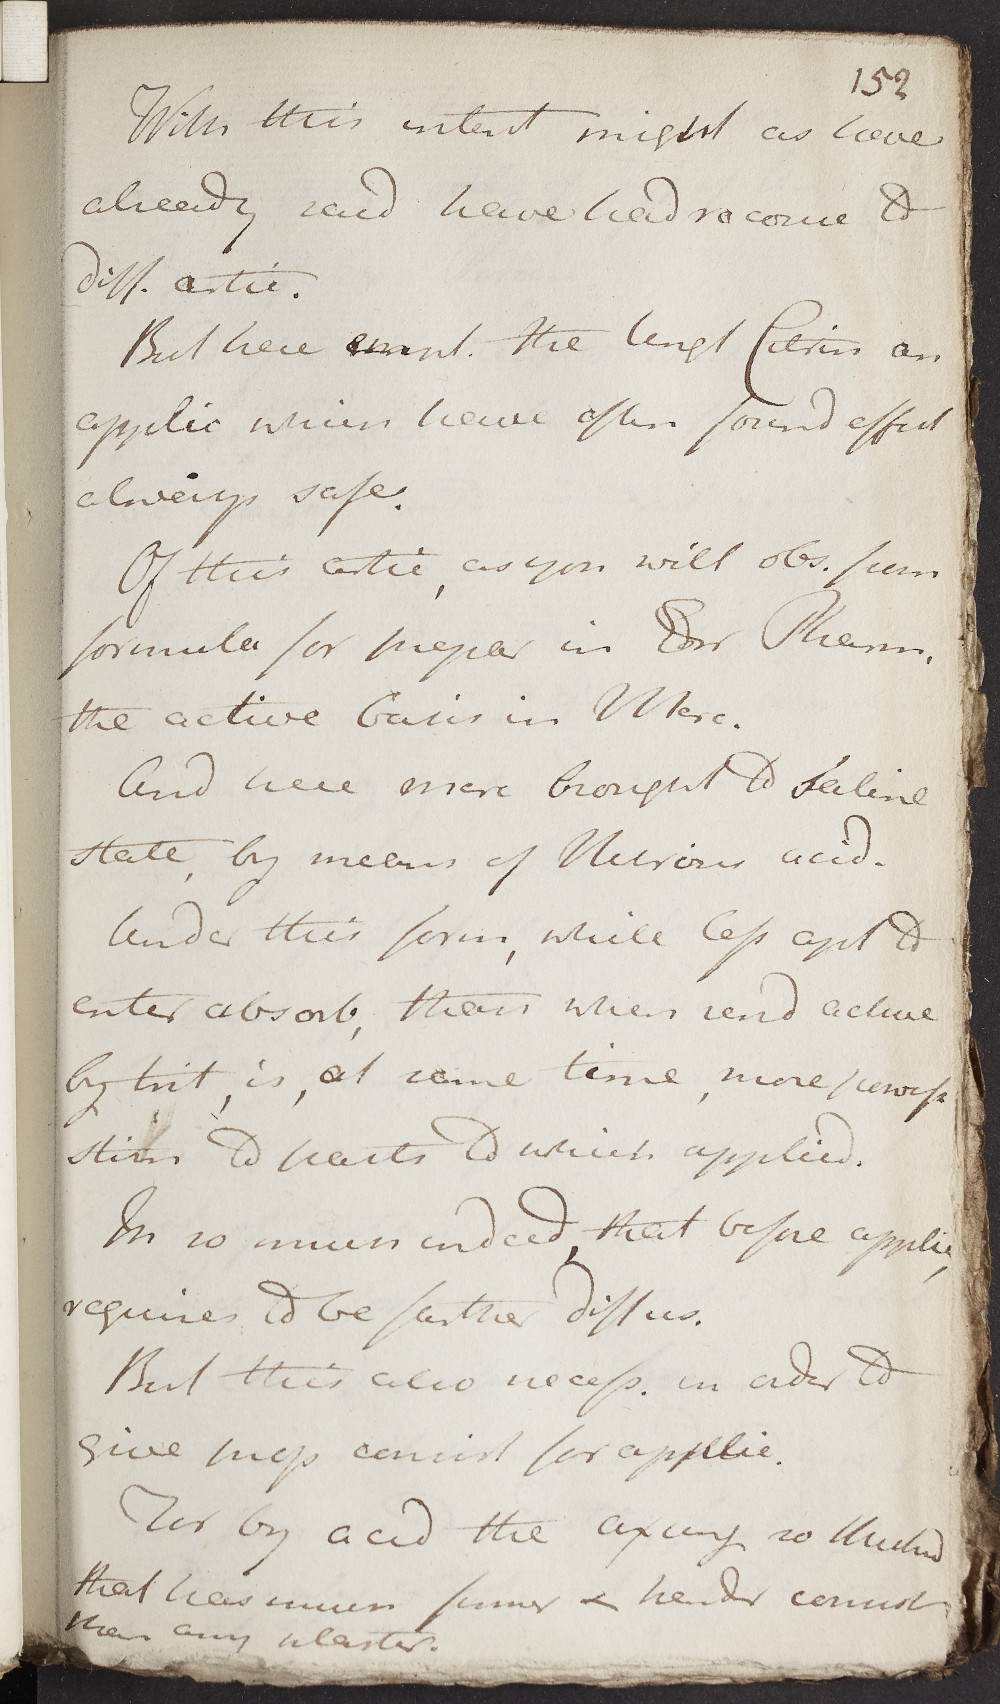 152
With this intent might as have
already said have had recourse to
diff. artic.
But here empl. the Ungt Citrin an
applic which have often found effect
always safe.
Of this artic, as you will obs. from
formula for prepar in Edin Pharm.
the active basis in Merc.
And here merc brought to Saline
state, by means of Nitrous acid.
Under this form, while less apt to
enter absorb, than when rend active
by trit, is, at same time, more powerf
stim to parts to which applied.
In so much indeed, that before applic,
requires to be farther diffus.
But this also necess. in order to
give prop consist for applic.
For by acid the axung so
that has much firmer & harder consist
than any plaster.